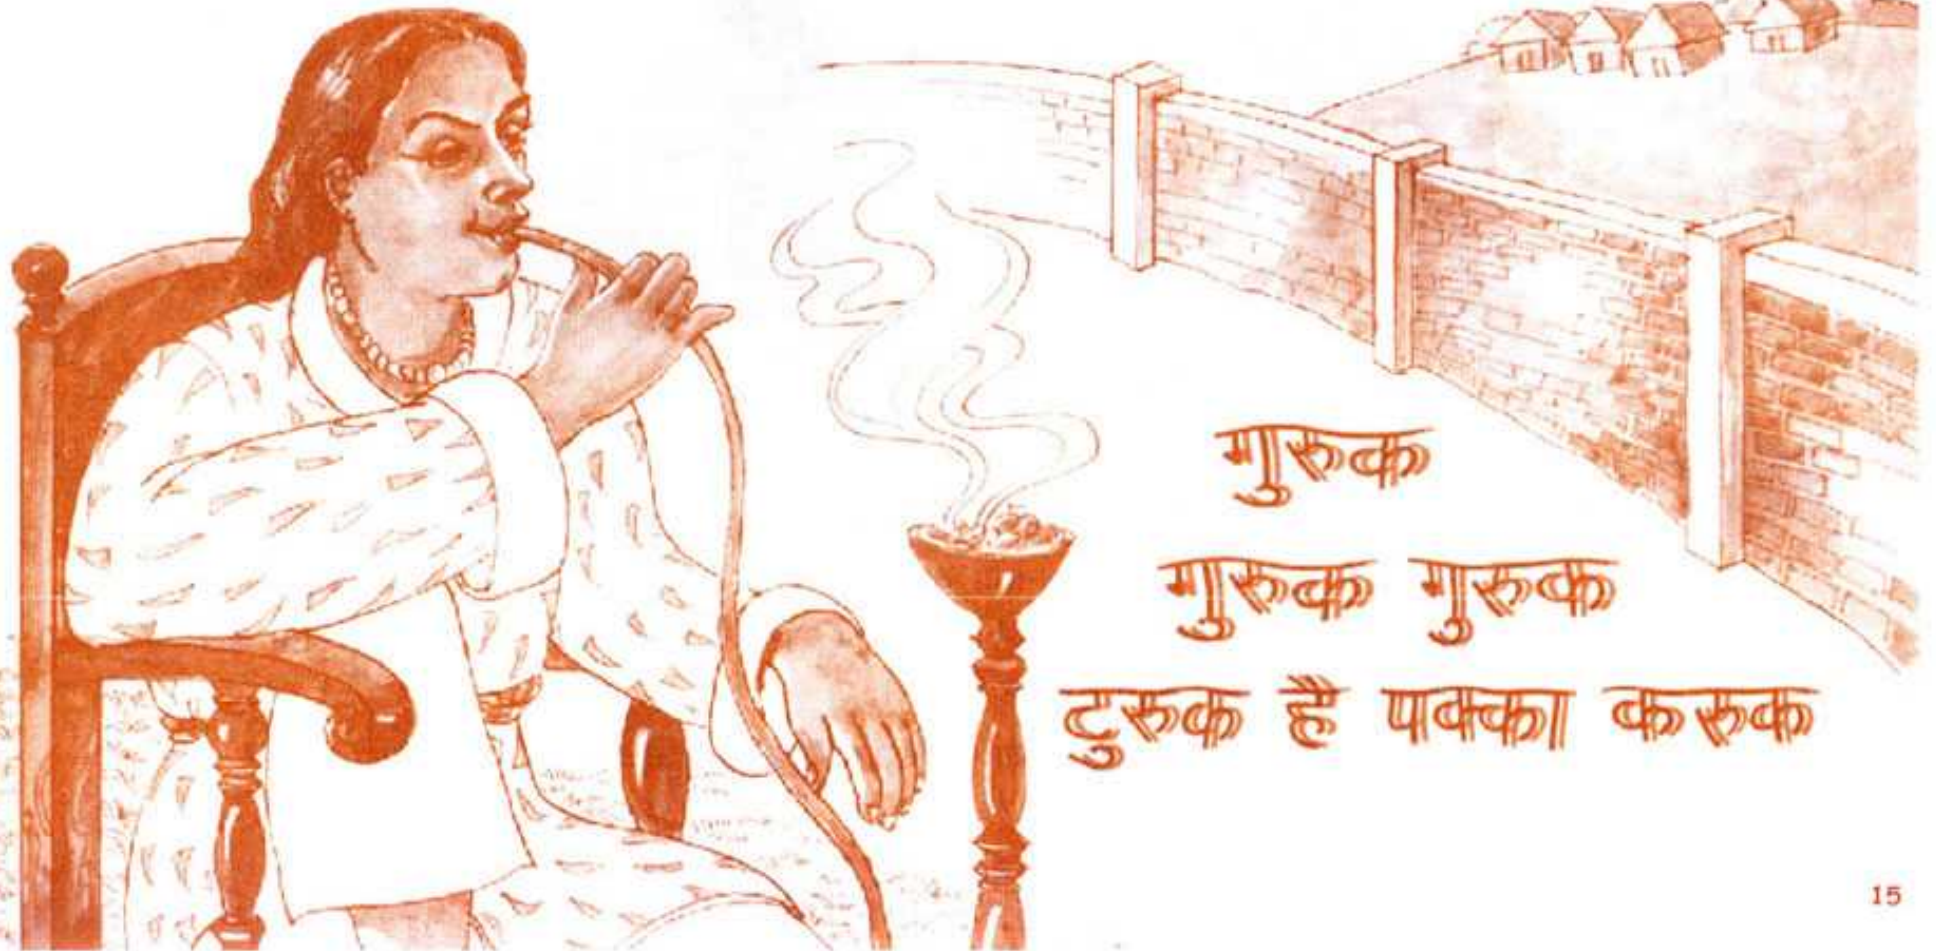 गुरुक
गुरुक गुरुक
टुरुक है पक्का करुक
15